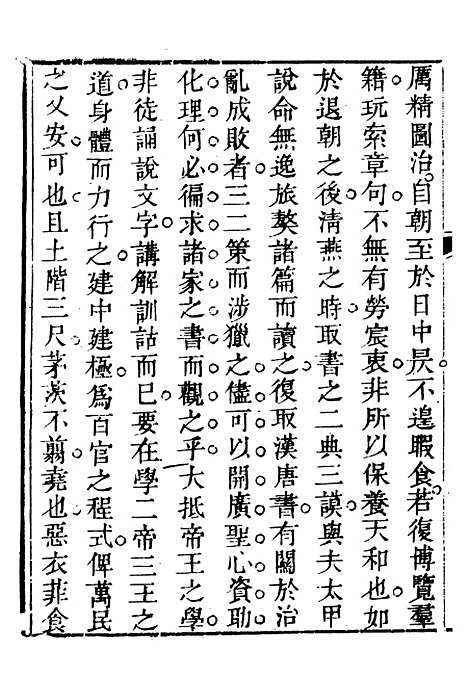 厲精圖治自朝至於日中昃不遑暇食若復博覽羣
籍玩索章句不無有勞宸衷非所以保養天和也如
於退朝之後淸燕之時取書之二典三謨與夫太甲
說命無逸旅獒諸篇而讀之復取漢唐書有關於治
亂成敗者三二策而涉獵之儘可以開廣聖心資助
化理何必徧求諸家之書而觀之乎大抵帝王之學
非徒誦說文字講解訓詁而巳要在學二帝三王之
道身體而力行之建中建極爲百官之程式俾萬民
之乂安可也且土階三尺茅茨不翦堯也惡衣菲食